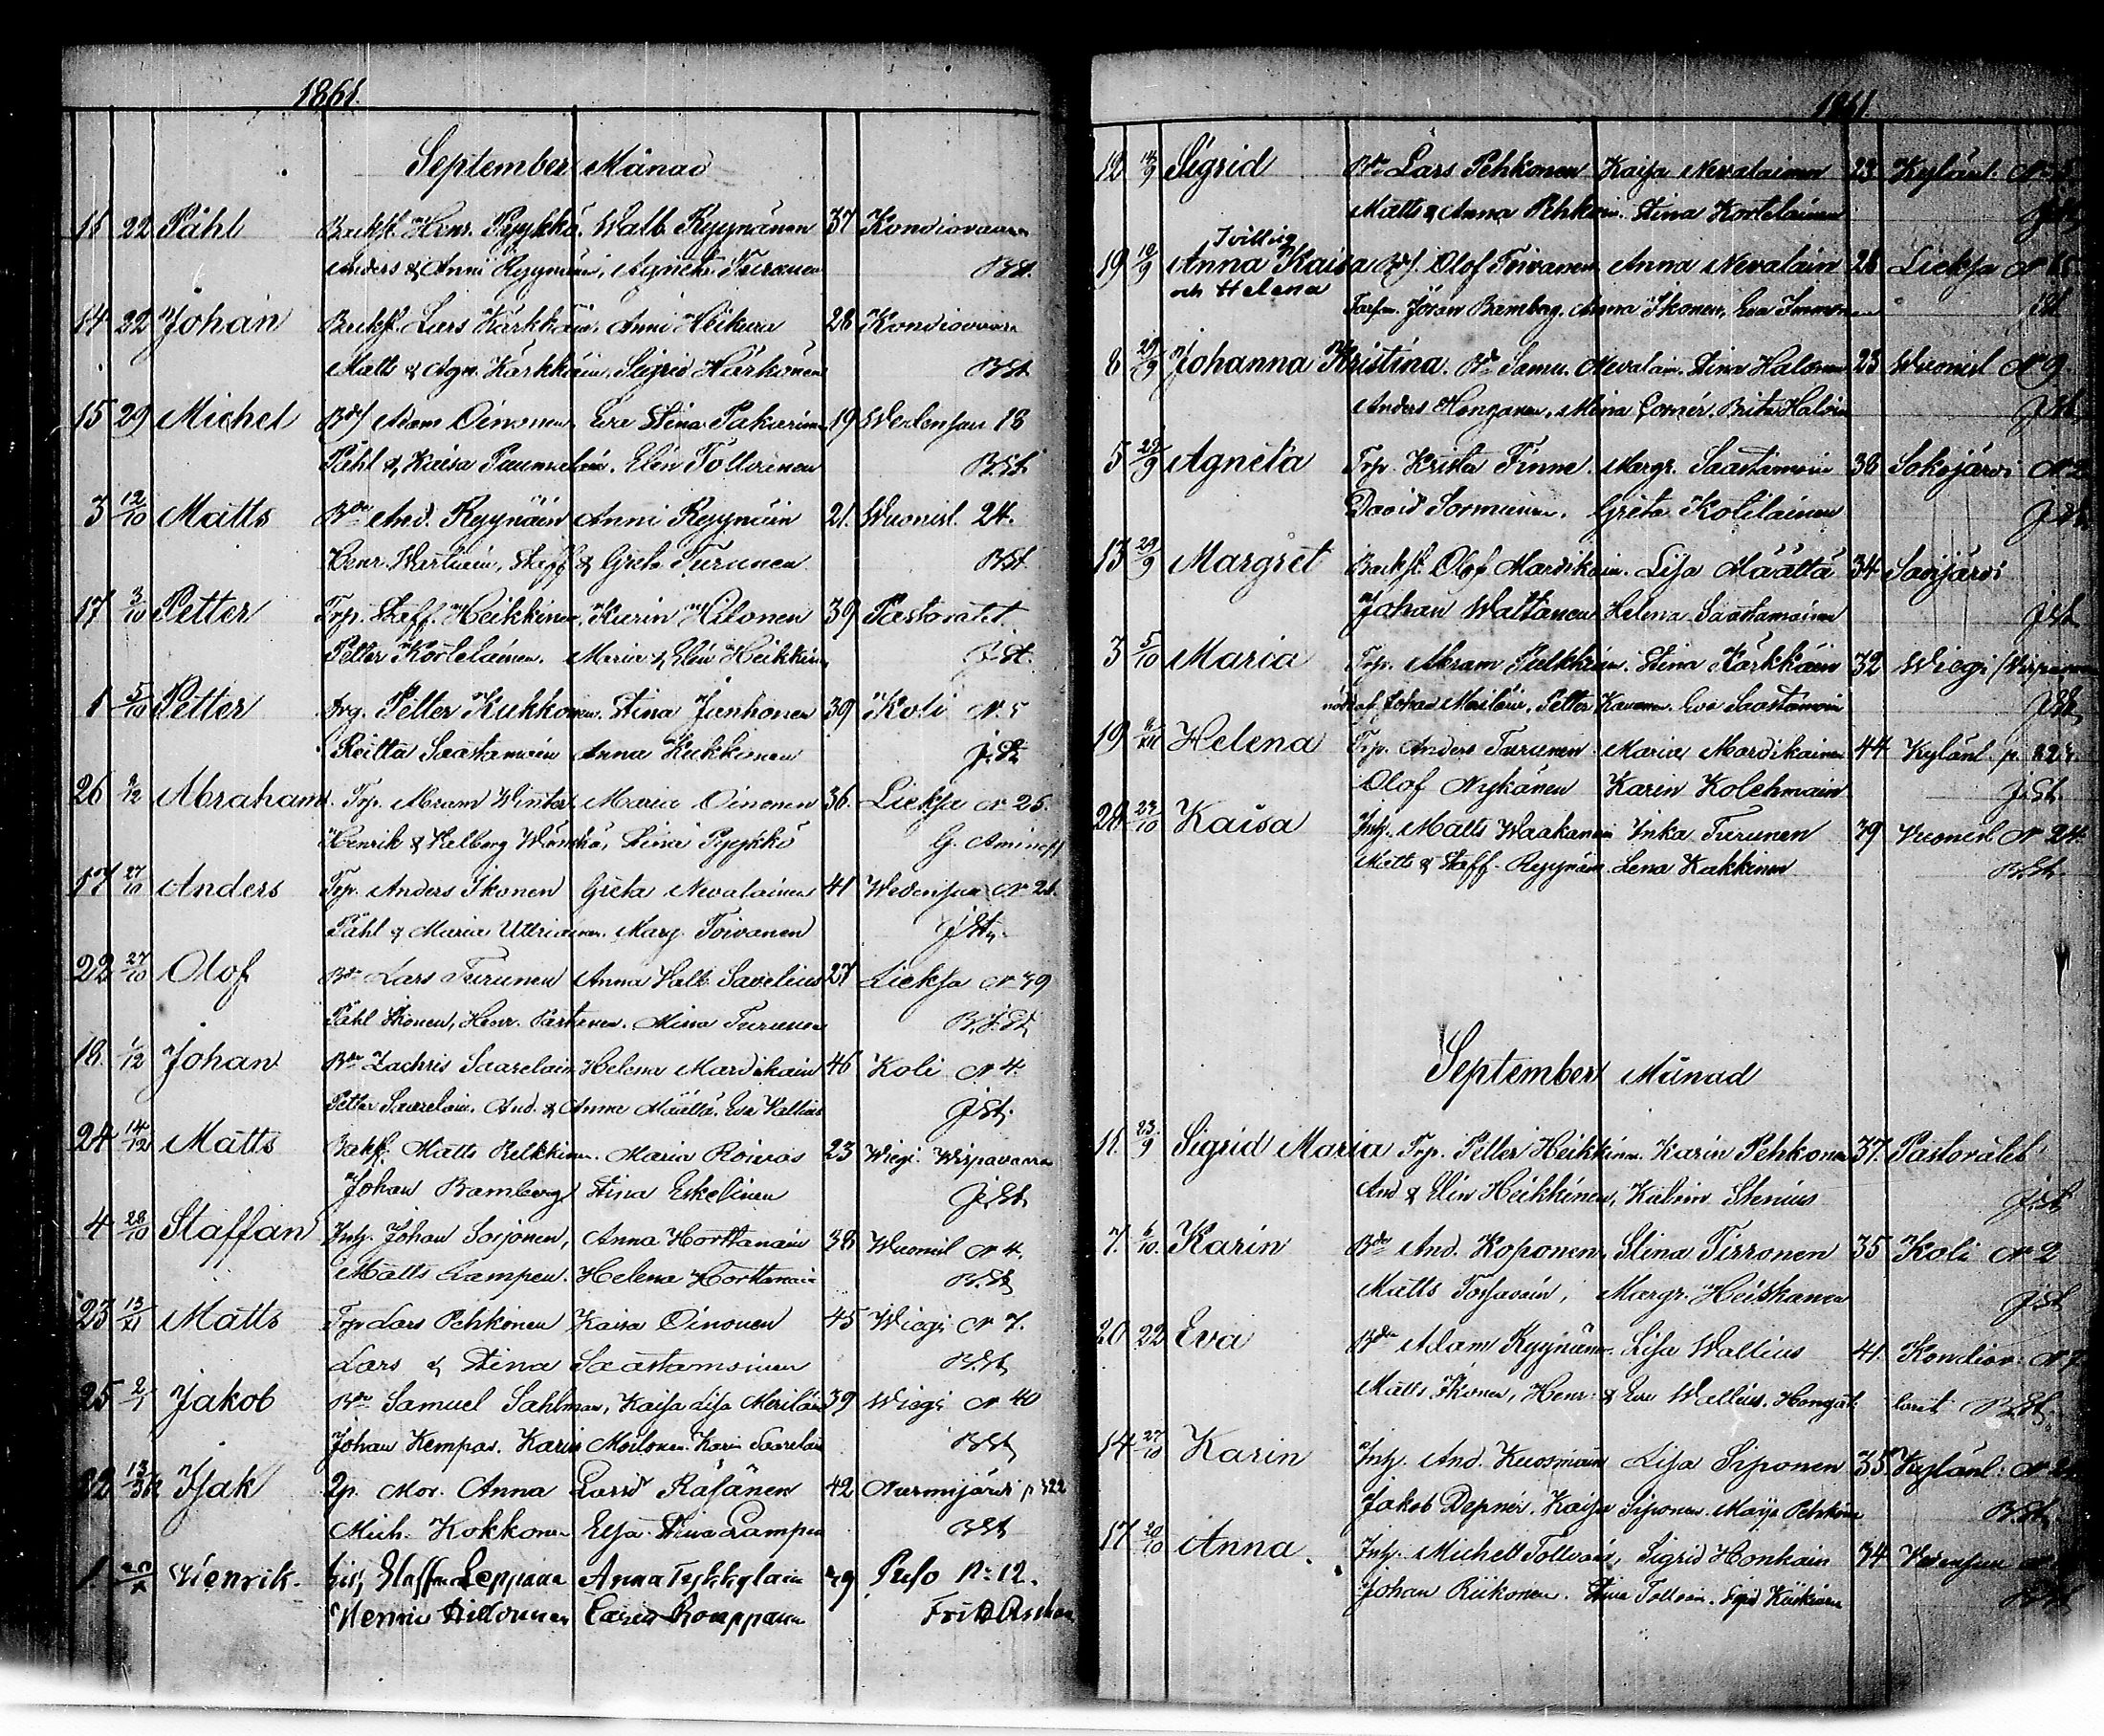 1861.
September Månad
11 22 Påhl Backst. Henr. Pyykkö. Walb. Ryynänen 37 Kondiovaara
Anders & Anni Ryynänen, Agneta Turunen B.St.
14 22 Johan Backst. Lars Kärkkäin. Anni Heikura 28 Kondiovaara
Matts & Agn. Kärkkäin. Sigrid Härkönen B.St.
15 29 Michel Adam Oinonen. Eva Stina Pakarinen 19 18
Påhl & Kaisa . Elin Tolvanen B.St.
3 12/10 Matts Bdn And. Ryynäin Anni Ryynäin 21. Wuonisl. 24.
Henr. , Staff & Greta Turunen B.St.
17 3/10 Petter Trp. Staff. Heikkinen. Karin Hilonen 39 Pastoratet
Petter Kortelainen. Maria & Elin Heikkin J.St.
1 5/10 Petter Petter Kukkonen. Stina Janhonen 39 Koli N. 5
Saastamoin Anna Kukkonen J.St.
26 2/12 Abraham. Trp. Abram Winter Maria Oinonen 36. Lieksa N 25.
Henrik & Walborg , Stina Pyykkö G. Aminoff
17 27/10 Anders Trp. Anders Ikonen Greta Nevalainen 41 N 21.
Påhl & Maria Uttriainen. Marg. Toivanen J.St.
22 27/10 Olof Bdn Lars Turunen Anna Walb. Savelius 27 Lieksa N 39
Påhl Ikonen, Henr. Partanen. Mina Turunen B.St.
18. 1/12 Johan Bdn Zachris Saarelain Helena Mardikain 46 Koli N 4.
Petter Saarelain. And. & Anna Määttä. Eva Wallius J.St.
24 14/12 Matts Backst. Matts Pelkkinen. Maria Roivas 23 Wiegi. Wispavaara
Johan Bamberg Stina Eskelinen J.St.
4 28/10 Staffan Inh. Johan Sorjonen, Anna Horttanain 38 Wuonisl. N 4.
Matts Lampen. Helena Horttanain B.St.
23 13/XI Matts Trp Lars Pehkonen Kaisa Oinonen 45 Wiegi N 7.
Lars & Stina Saastamoinen B.St.
25 2/1 Jakob Bdn Samuel Sahlman, Kaisa Lisa Meriläin 39 Wiegi N 40
Johan Kempas. Karin Moilanen. Karin Saarelain B.St.
22 Isak Qp. Mor. Anna Larsd. Räsänen 42 Nurmijärvi p 322
Mich. Kokkonen Elsa Stina Lampen B.St.
1 Henrik. Staffan Leppänen Anna Tykkyläin 29 Puso N: 12.
Henric Carin Romppanen
1861.
12 14/9 Sigrid Bdn Lars Pehkonen Kaisa Nevalainen 23 Kylänl. N 5
Matts & Anna Pehkoin. Stina Kortelainen J.St.
Tvilling
19 19/9 Anna Kaisa Olof Toivanen Anna Nevalain 26 Lieksa N 15
och Helena
Jöran Bamberg. Anna Ikonen, Eva Immonen
8 29/9 Johanna Kristina. Bdn Samu. Nevalain. Stina Halonen 23 Wuonisl. N 9.
Anders Honganen. Mina Cornér. Brita Haloin J.St.
5 29/9 Agneta Trp. Krista Finne. Margr. Saastamoin 38 Sokojärvi N 2
David Sormunen. Greta Kotilainen J.St.
13 29/9 Margret Backst. Olof Mardikain. Lisa Määttä 34 Savijärvi
Johan Wattanen Helena Saastamoinen J.St.
3 5/10 Maria Trp. Abram Pulkkinen. Stina Kärkkäin 32 Wiegi Wispavaara
Johan Meriläin. Petter . Eva Saastamoin J.St.
19 Helena Trp. Anders Turunen Maria Mardikainen 44 Kylänl. p.
Olof Nykänen Karin Kolehmain J.St.
28 27/10 Kaisa Inh. Matts Waakanain Inka Turunen 39 Wuonisl. N 24.
Matts & Staff. Ryynän. Lena Kukkonen B.St.
September Månad
11. 23/9 Sigrid Maria Trp. Petter Heikkinen. Karin Pehkonen 37. Pastoratet
And & Elin Heikkinen, Stenius J.St.
7. 6/10. Karin Bdn And. Koponen, Stina Tirronen 35 Koli N 2
Matts Torsavain, Margr. Heiskanen J.St.
20 22 Eva Bdn Adam Ryynänen. Lisa Wallius 41. Kondiov. N 7
Matts Ikonen, Henr. & Eva Wallius. B.St.
14 27/10 Karin Inh. And. Kuosmain Lisa Siponen 35 Kylänl. N
Jakob Depner. Kaisa Siponen. Maija Pehkonen B.St.
17 20/10 Anna. Inh. Michell Tolvain, Sigrid Honkain 34
Johan Riikonen. Stina Tolvain. B.St.